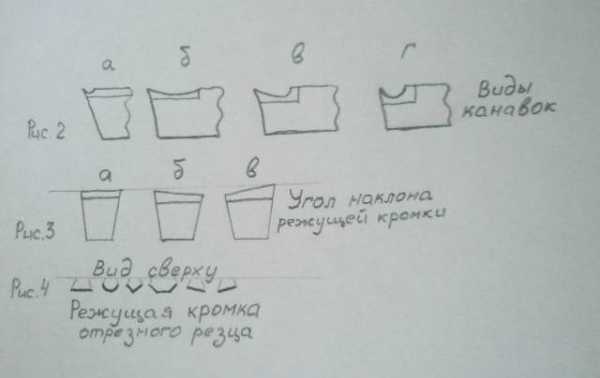 а б в г
Виды
канавок
Рис.2
а б в
Угол наклона
режущей кромки
Рис.3
Вид сверху
Рис.4
Режущая кромка
отрезного резца